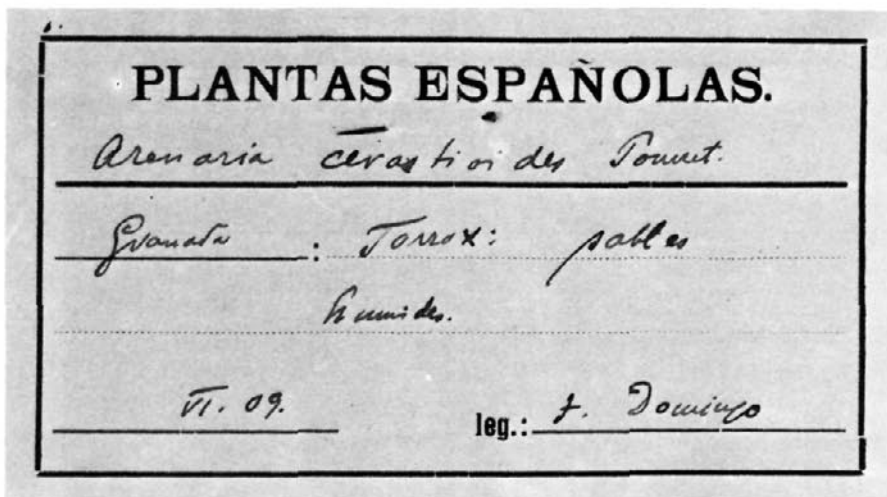 PLANTAS ESPAÑOLAS.
Arenaria cerastioides
Granada : Torrox: sables
humides.
VI. 09. leg.: J. Domingo